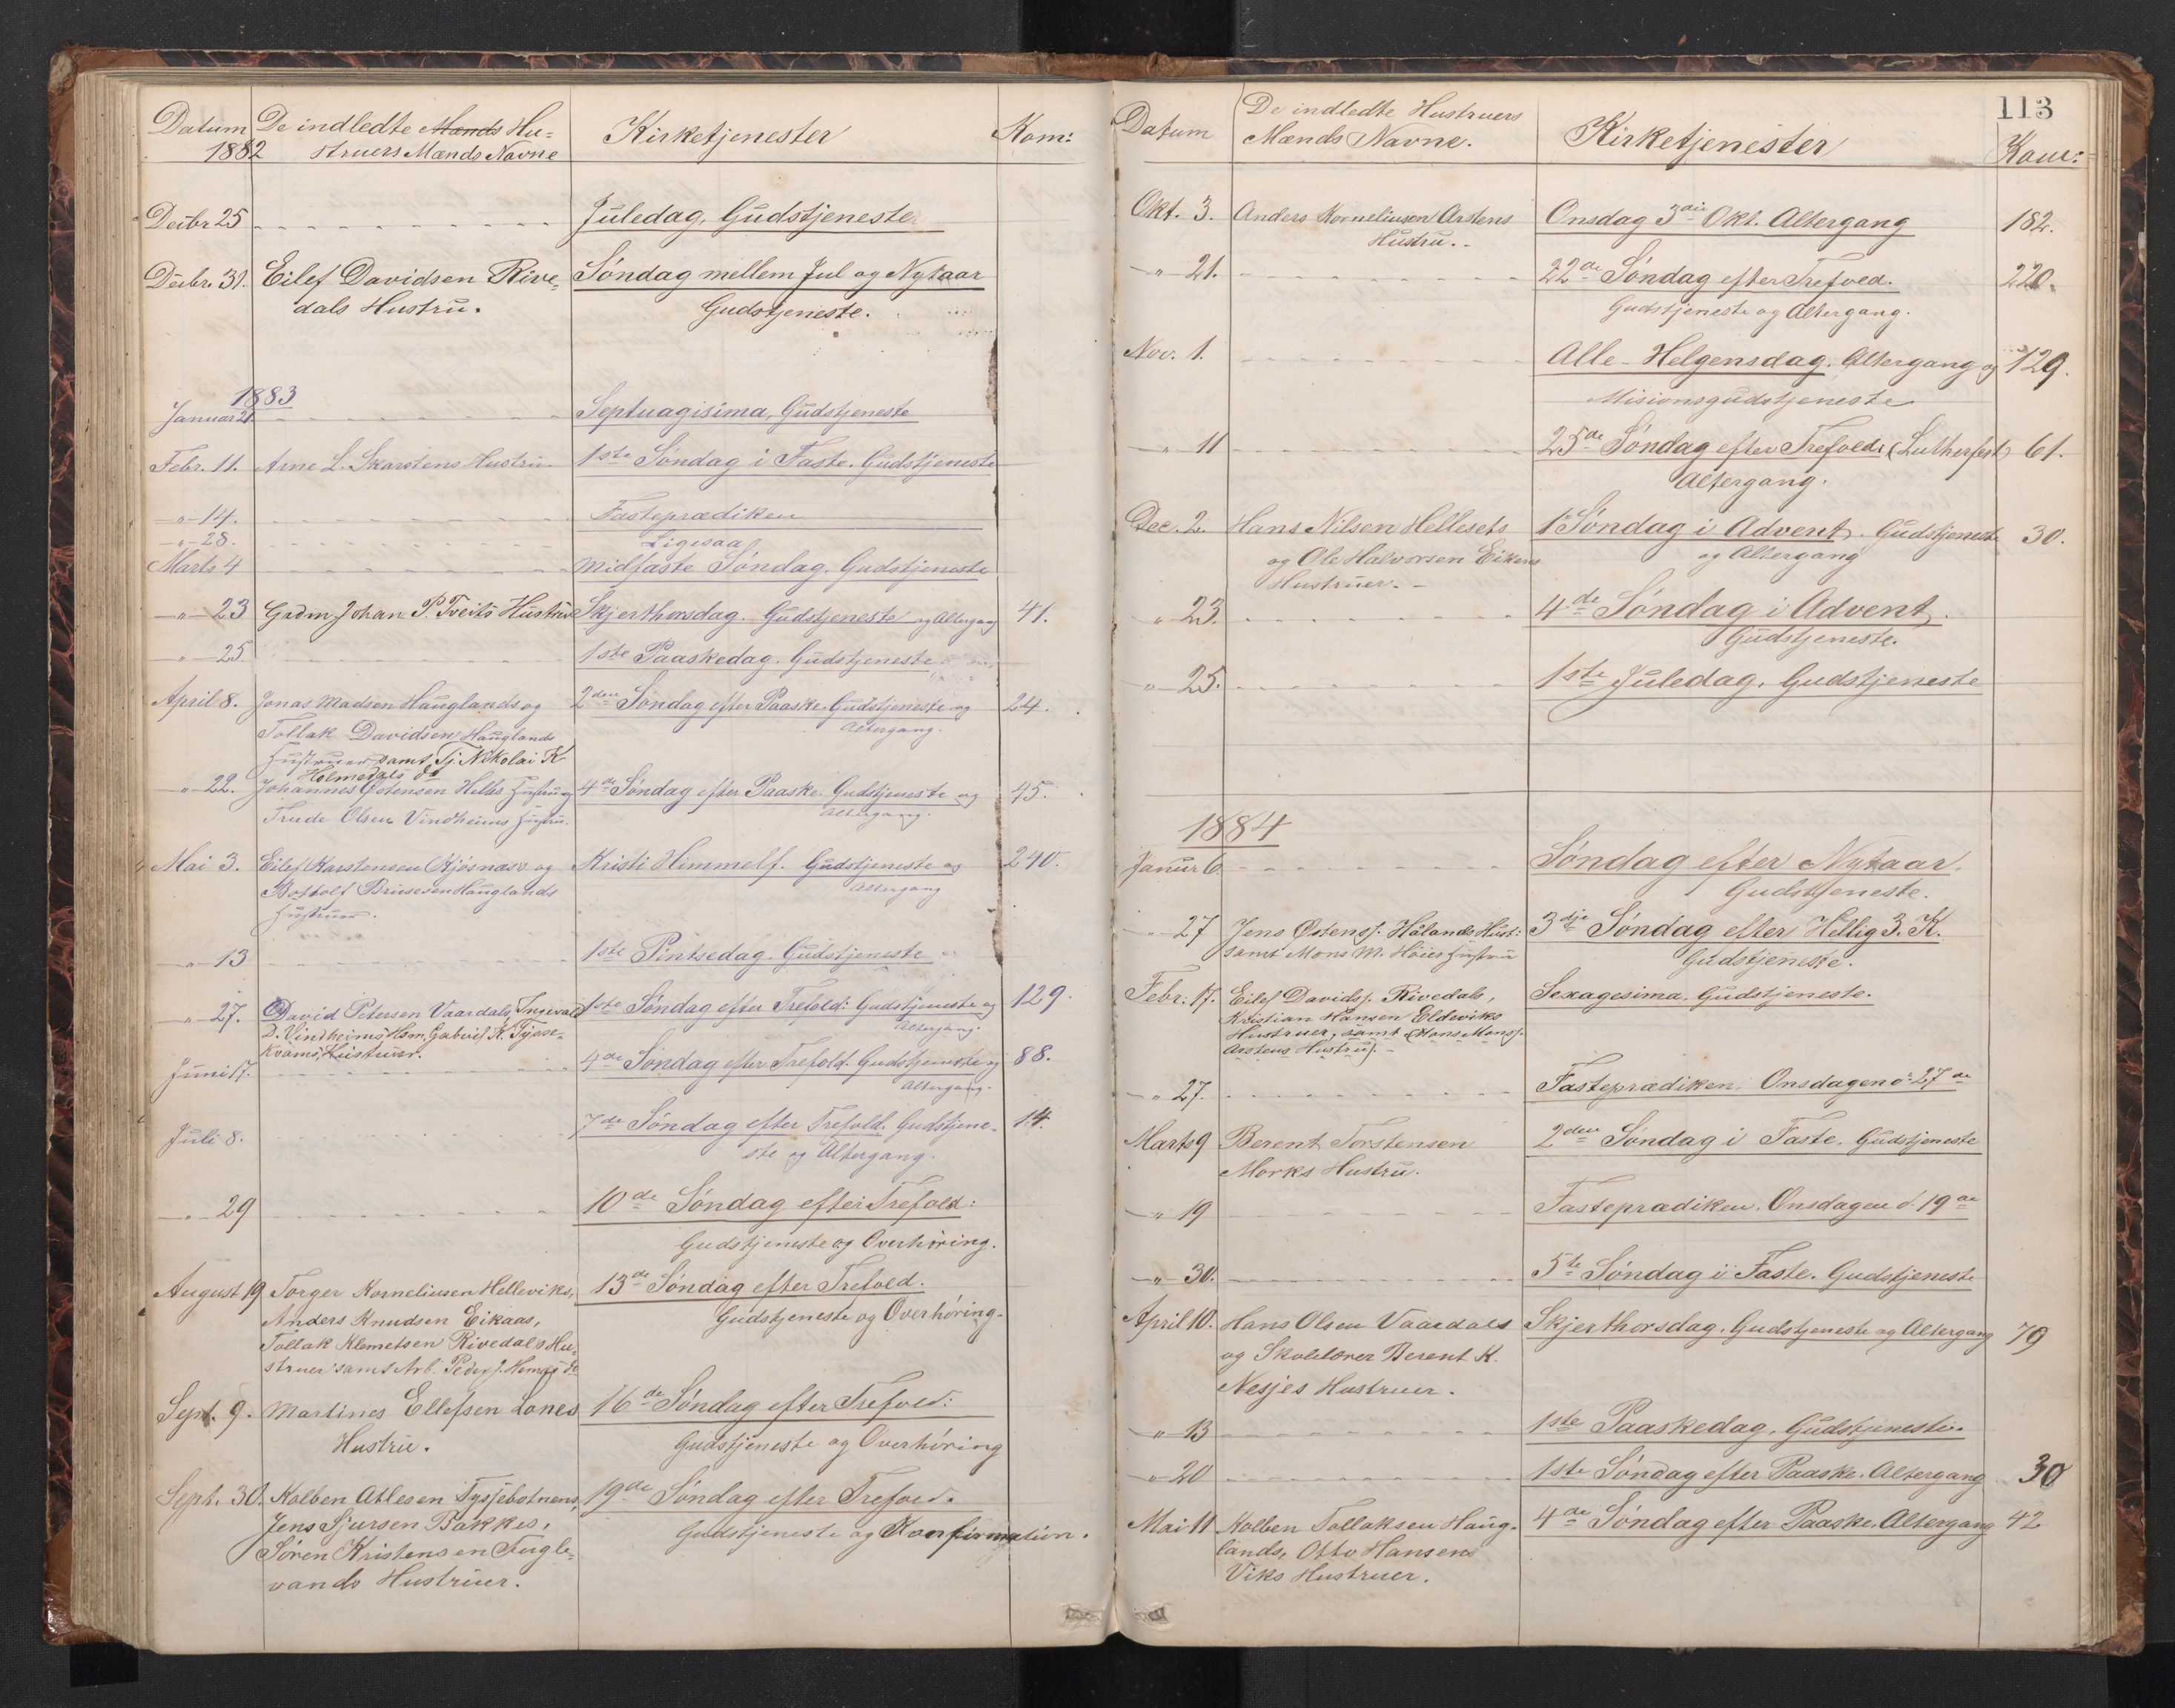 Datum De indledte Mænds Hu= Kirketjenester Kom:
1882 struers Mænds Navne
Decbr 25 Juledag, Gudstjeneste
Decbr. 31. Eilef Davidsen Rive= Søndag mellem Jul og Nytaar
dals Hustru. Gudstjeneste.
1883
Januar 21. Septuagisima, Gudstjeneste
Febr. 11. Arne L. Skarstens Hustru 1ste Søndag i Faste. Gudstjeneste
-"-14. Fasteprædiken
-"-28. Ligesaa
Marts 4 Midfaste Søndag. Gudstjeneste
-"-23 Grdm Johan P. Tveits Hustru Skjerthorsdag. Gudstjeneste og Altergang 41.
-"-25 1ste Paaskedag. Gudstjeneste
April 8. Jonas Madsen Hauglands og 2den Søndag efter Paaske. Gudstjeneste og 24.
Tollak Davidsen Hauglands Altergang.
Hustruer samt Tj. Nikolai K.
Holmedals do
-"-22. Johannes Østensen Helles Hustru og 4de Søndag efter Paaske. Gudstjeneste og 45.
Trude Olsen Vindheims Hustru. Altergang.
Mai 3. Eilef Karstensen Kjøsnæs og Kristi Himmelf. Gudstjeneste og 240.
Bottolf Brusesen Hauglands Altergang
Hustruer.
-"-13 1ste Pintsedag. Gudstjeneste
-"-27. David Petersen Vaardals, Ingevald 1ste Søndag efter Trefold: Gudstjeneste og 129.
D. Vindheims, Hsm. Gabriel K. Altergang.
Kvams, Hustruer.
Juni 17. 4de Søndag efter Trefold. Gudstjeneste og 88.
Altergang.
Juli 8. 7de Søndag efter Trefold. Gudstjene- 14.
ste og Altergang.
-"-29 10de Søndag efter Trefold:
Gudstjeneste og Overhøring.
August 19 Torger Korneliusen Helleviks, 13de Søndag efter Trefold.
Anders Knudsen Eikaas, Gudstjeneste og Overhøring.
Tollak Klemetsen Rivedals Hu=
struer samt Arb. Peder J. do
Sept. 9. Martines Ellefsen Lones 16de Søndag efter Trefold:
Hustru. Gudstjeneste og Overhøring
Sept. 30. Kolben Atlesen Tysjebotnens, 19de Søndag efter Trefold.
Jens Sjursen Bakkes, Gudstjeneste og Konfirmation.
Søren Kristensen Fugle=
vands Hustruer.
113
Datum De indledte Hustruers Kirketjenester Kom:
Mænds Navne.
Okt. 3. Anders Korneliusen Arstens Onsdag 3die Okt. Altergang 182.
Hustru.
-"-21. 22de Søndag efter Trefold. 220.
Gudstjeneste og Altergang.
Nov. 1. Alle-Helgensdag. Altergang og 129.
Misionsgudstjeneste
-"-11 25de Søndag efter Trefold: (Lutherfest) 61.
Altergang.
Dec. 2. Hans Nilsen Hellesets 1. Søndag i Advent. Gudstjeneste 30.
og Ole Halvorsen Eikens og Altergang
Hustruer.
-"-23. 4de Søndag i Advent.
Gudstjeneste.
-"-25. 1ste Juledag, Gudstjeneste
1884
Janur 6 Søndag efter Nytaar.
Gudstjeneste.
-"-27 Jens Østens. Hålands Hust: 3dje Søndag efter Hellig 3. K.
samt Mons M. Høies Hustru Gudstjeneste.
Febr: 17. Eilef Davids. Rivedals, Sexagesima. Gudstjeneste.
Kristian Hansen Eldeviks
Hustruer, samt (Hans Mons.
Arstens Hustru).
-"-27. Fasteprædiken. Onsdagen d. 27de
Marts 9 Berent Torstensen 2den Søndag i Faste. Gudstjeneste
Morks Hustru.
-"-19 Fasteprædiken. Onsdagen d. 19de
-"-30. 5te Søndag i Faste. Gudstjeneste
April 10. Hans Olsen Vaardals Skjerthorsdag. Gudstjeneste og Altergang 79
og Skolelærer Berent K.
Nesjes Hustruer.
-"-13 1ste Paaskedag, Gudstjeneste.
-"-20 1ste Søndag efter Paaske. Altergang 30
Mai 11 Kolben Tollaksen Haug- 4de Søndag efter Paaske. Altergang 42
lands, Otto Hansens
Viks Hustruer.